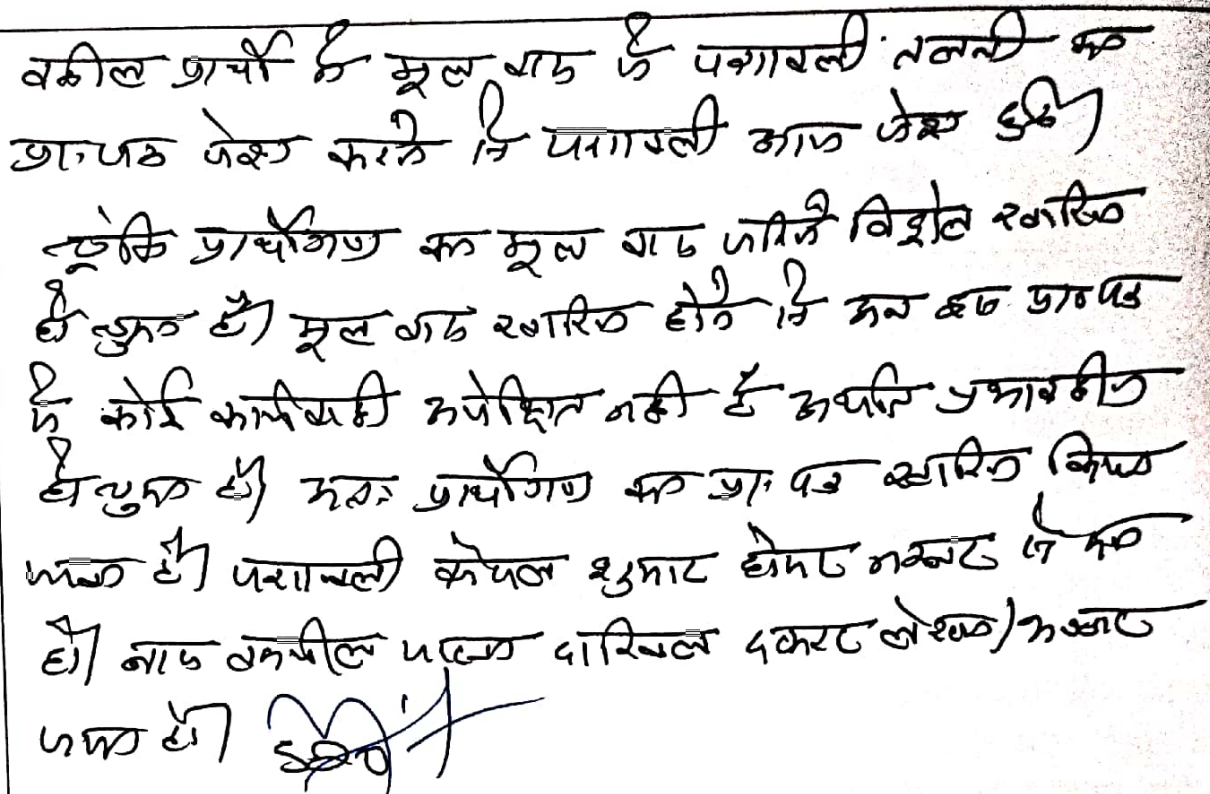 वकील प्रार्थी ने मूल वाद में पत्रावली तलबी का
प्रा. पत्र पेश करने से पत्रावली आज पेश हुई।
चूंकि प्रार्थीगण का मूल वाद खारिज
हो चुका है। मूल वाद खारिज होने से अब इस प्रा० पत्र
में कोई कार्यवाही अपेक्षित नहीं है अर्थात प्रभावहीन
हो चुका है। अतः प्रार्थीगण का प्रा. पत्र खारिज किया
जाता है। पत्रावली फैसल शुमार होकर नम्बर से कम
हो। बाद तकमील दाखिल दफ्तर